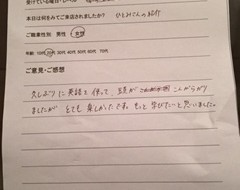 本日は何をみてご来店されましたか? ひとみさんの紹介
ご職業性別: 男性 ・ 女性
年齢 10代 20代 30代 40代 50代 60代 70代
ご意見・ご感想
久しぶりに英語を使って、頭が こんがらがり
ましたが とても楽しかったです。もっと学びたいと思いました。